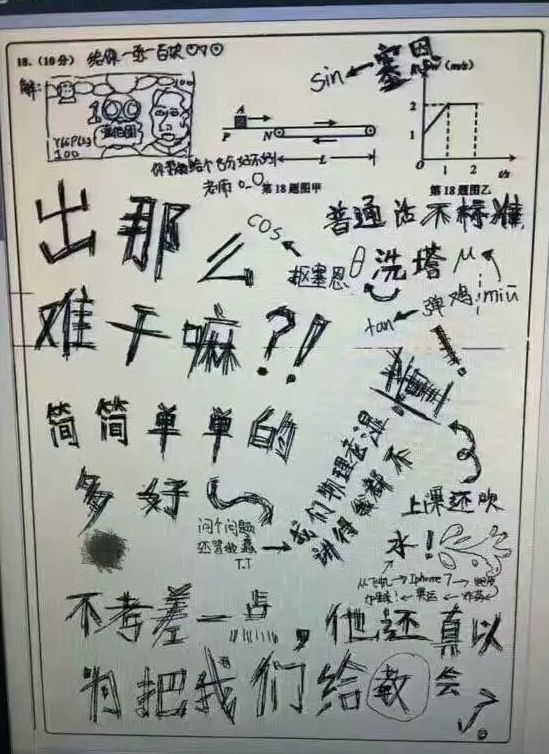 18.(10分) 给你一张一百块
解:
100
YGGPL23
100
你就给个6分好不好
老师
A
P
N
L
第18题图甲
sin
塞因
(m/s)
2
1
O
1
2
t/s
第18题图乙
出那么
cos
抠塞恩
普通话不标准
θ
洗塔
μ
miū
弹鸡
tan
难干嘛?!
简简单单的
多好
问个问题
还骂我蠢
T.T
我们物理老湿
讲得我都不
懂!
上课还吹
水!
从飞机
Iphone 7
奥运
不考差一点,他还真以
为把我们给教会
了